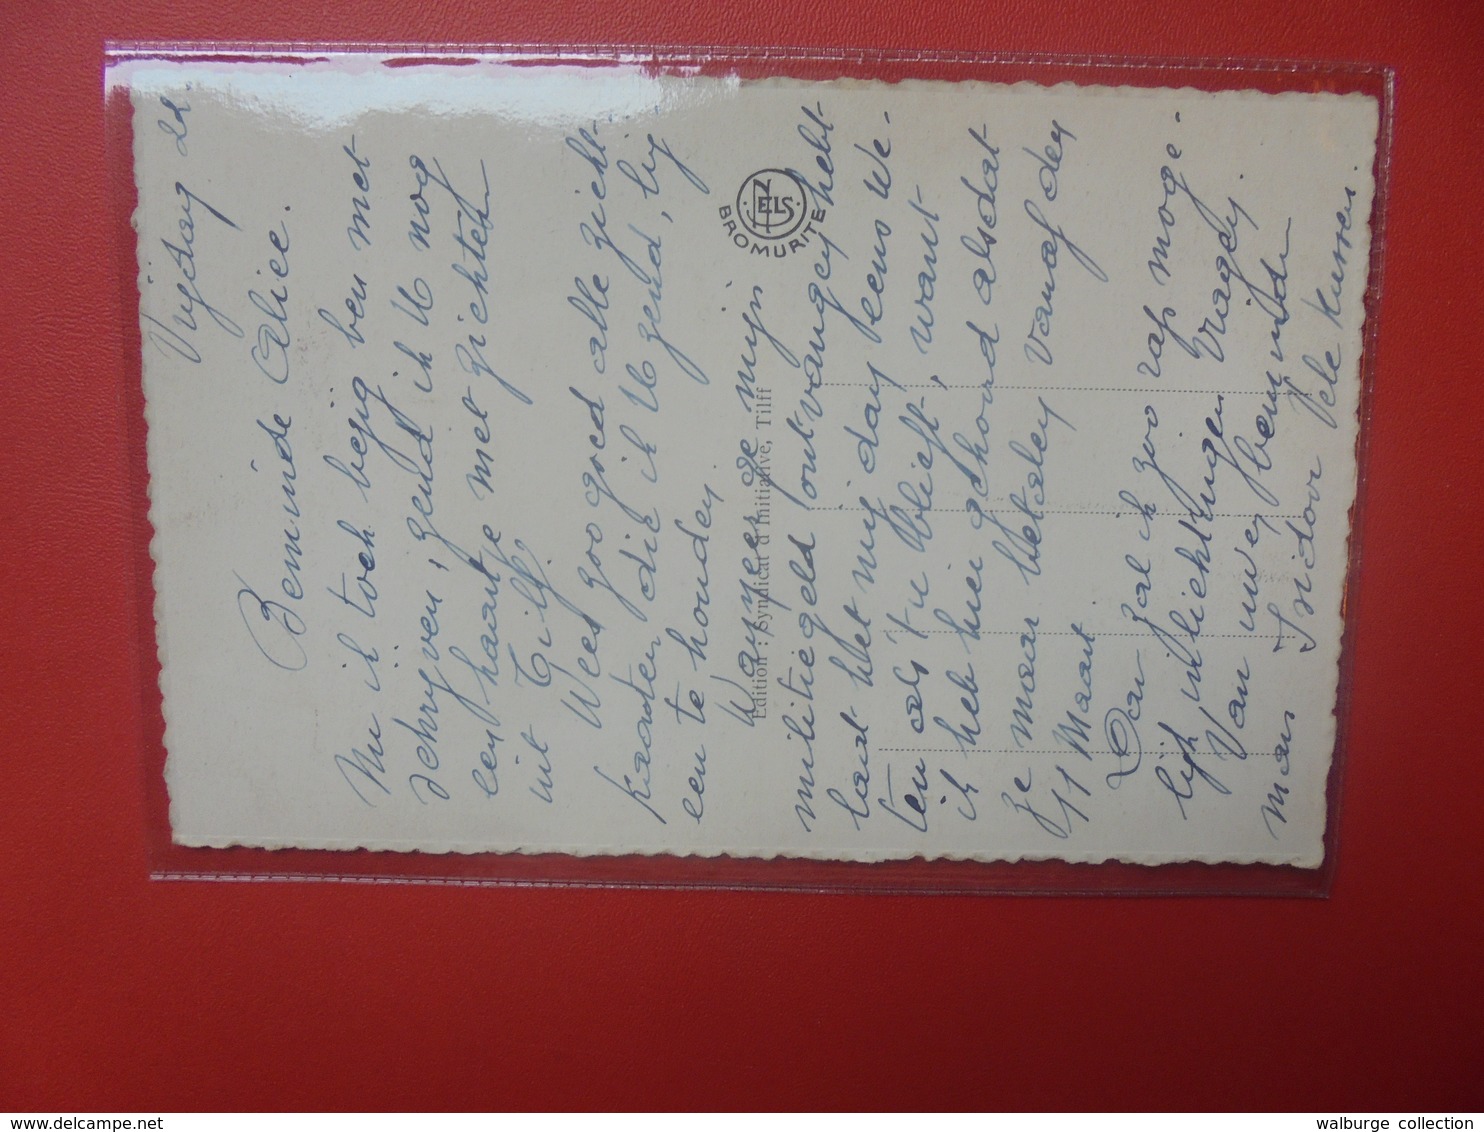 Vrijdag 22.
Beminde Alice.
Nu ik toch bezig ben met
schryven, zend ik U nog
een kaartje met zichten
uit Tilff.
Weet zoo goed alle zicht-
kaarten die ik U zend, by
een te houden
Wanneer ge mijn
militiegeld ontvangen hebt
laat het mij dan eens we-
ten als 't u blieft, want
ik heb hier gehoord alsdat
ze maar betalen vanaf den
11 Maart.
Dan zal ik zoo rap moge-
lijk inlichtingen vragen.
Van uwen beminde
man Isidoor Vele kussen.
Edition : Syndicat d'Initiative, Tilff
NELS
BROMURITE
walburge collection